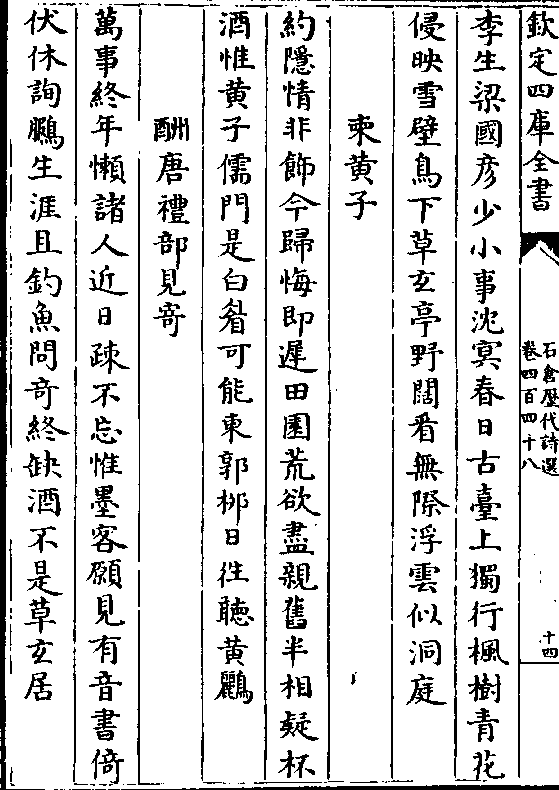 欽定四庫全書
石倉歷代詩選
卷四百四十八
十四
李生梁國彦少小事沈冥春日古臺上獨行楓樹青花
侵映雪壁鳥下草玄亭野闊看無際浮雲似洞庭
柬黄子
約隱情非飾今歸悔即遲田園荒欲盡親舊半相疑杯
酒惟黄子儒門是白眉可能東郭栁日往聽黄鸝
酬唐禮部見寄
萬事終年懶諸人近日疎不忘惟墨客願見有音書倚
伏休詢鵩生涯且釣魚問奇終缺酒不是草玄居